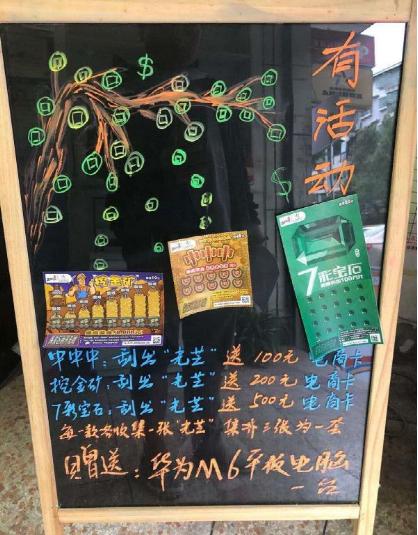 有活动
挖金矿
中中中
7彩宝石
中中中：刮出“光芒”送100元电商卡
挖金矿：刮出“光芒”送200元电商卡
7彩宝石：刮出“光芒”送500元电商卡
每一款各收集一张“光芒”集齐三张为一套
赠送：华为M6平板电脑
一台